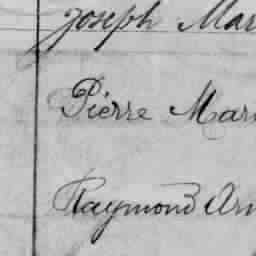 Joseph Mar
Pierre Mar
Raymond Arn